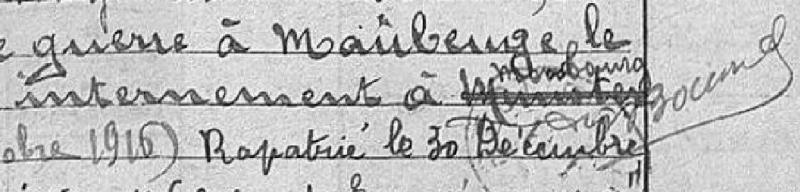 e guerre à Maubeuge le
internement à Munster
obre 1916) Rapatrié le 30 Décembre